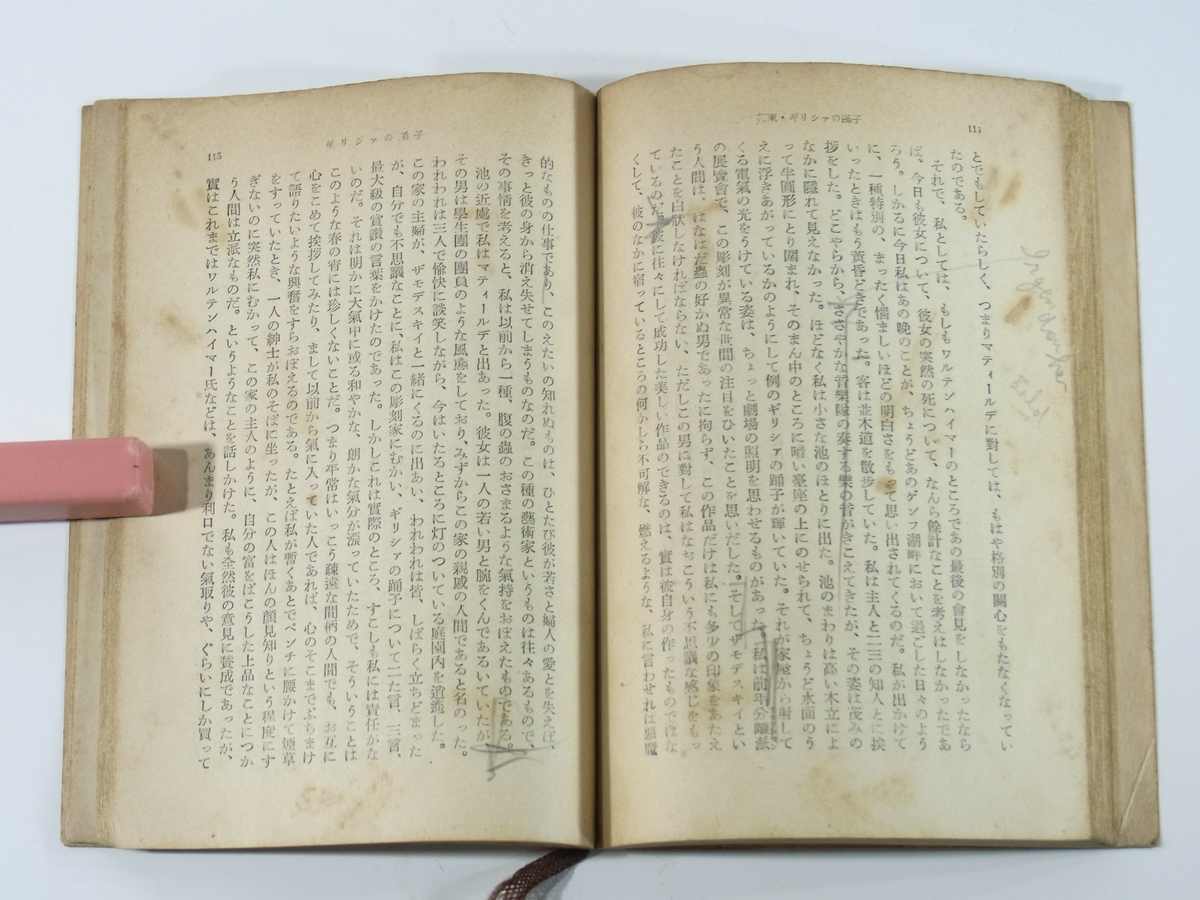 114
とでもしていたらしく、つまりマティールデに對しては、もはや格別の關心をもたなくなってい
たのである。
それで、私としては、もしもワルテンハイマーのところであの最後の會見をしなかったなら
ば、今日も彼女について、彼女の突然の死について、なんら餘計なことを考えはしなかったであ
ろう。しかるに今日私はあの晚のことが、ちょうどあのゲンフ湖畔において過ごした日々のよう
に、一種特別の、まったく惱ましいほどの明白さをもって思い出されてくるのだ。私が出かけて
いったときはもう黃昏どきであった。客は並木道を散步していた。私は主人と二三の知人とに挨
拶をした。どこやらから、ささやかな音樂隊の奏する樂の音がきこえてきたが、その姿は茂みの
なかに隱れて見えなかった。ほどなく私は小さな池のほとりに出た。池のまわりは高い木立によ
って半圓形にとり圍まれ、そのまん中のところに暗い臺座の上にのせられて、ちょうど水面のう
えに浮きあがっているかのようにして例のギリシァの踊子が輝いていた。それが家屋から射して
くる電氣の光をうけている姿は、ちょっと劇場の照明を思わせるものがあった。私は前年分離派
の展覽會で、この彫刻が異常な世間の注目をひいたことを思いだした。そしてザモデスキイとい
う人間は、はなはだ蟲の好かぬ男であったに拘らず、この作品だけは私にも多少の印象をあたえ
たことを白狀しなければならない、ただしこの男に對して私はなおこういう不思議な感じをもっ
ているのだ。彼に往々にして成功した美しい作品のできるのは、實は彼自身の作ったものではな
くして、彼のなかに宿っているところの何かしら不可解な、燃えるような、私に言わせれば惡魔
ギリシァの踊子
115
的なものの仕事であり、このえたいの知れぬものは、ひとたび彼が若さと婦人の愛とを失えば、
きっと彼の身から消え失せてしまうものなのだ。この種の藝術家というものは往々あるもので、
その事情を考えると、私は以前から一種、腹の蟲のおさまるような氣持をおぼえたものである。
池の近處で私はマティールデと出あった。彼女は一人の若い男と腕をくんであるいていたが、
その男は學生團の團員のような風態をしており、みずからこの家の親戚の人間であると名のった。
われわれは三人で愉快に談笑しながら、今はいたるところに灯のついている庭園內を逍遙した。
この家の主婦が、ザモデスキイと一緖にくるのに出あい、われわれは皆、しばらく立ちどまった
が、自分でも不思議なことに、私はこの彫刻家にむかい、ギリシァの踊子について二た言、三言、
最大級の賞讚の言葉をかけたのであった。しかしこれは實際のところ、すこしも私には責任がな
いのだ。それは明かに大氣中に或る和やかな、朗かな氣分が漲っていたためで、そういうことは
このような春の宵には珍しくないことだ。つまり平常はいっこう疎遠な間柄の人間でも、お互に
心をこめて挨拶してみたり、まして以前から氣に入っていた人であれば、心のそこまでぶちまけ
て語りたいような興奮をすらおぼえるのである。たとえば私が暫くあとでベンチに腰かけて煙草
をすっていたとき、一人の紳士が私のそばに坐ったが、この人はほんの顏見知りという程度にす
ぎないのに突然私にむかって、この家の主人のように、自分の富をばこうした上品なことにつか
う人間は立派なものだ。というようなことを話しかけた。私も全然彼の意見に贊成であったが、
實はこれまではワルテンハイマー氏などは、あんまり利口でない氣取りや、ぐらいにしか買って